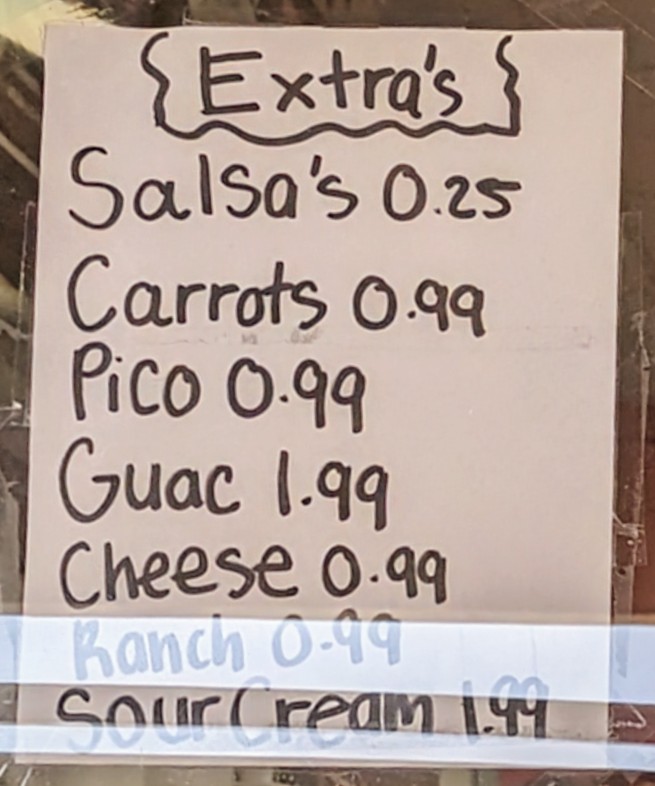 {Extra's}
Salsa's 0.25
Carrots 0.99
Pico 0.99
Guac 1.99
Cheese 0.99
Ranch 0.99
Sour Cream 1.99